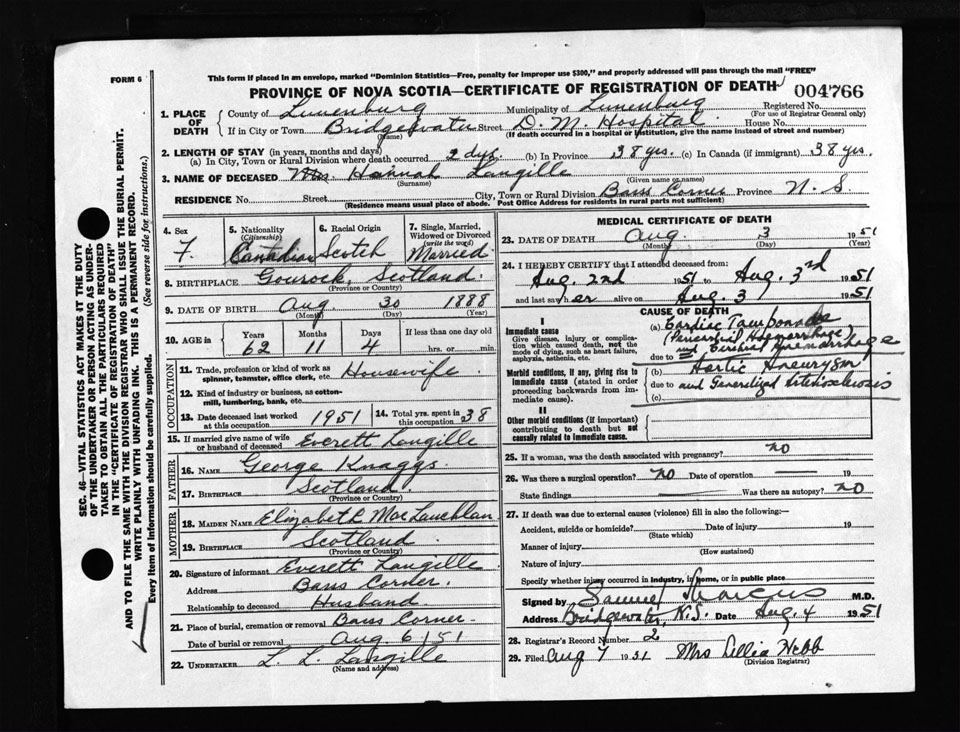 This form if placed in an envelope, marked "Dominion Statistics—Free, penalty for improper use $300," and properly addressed will pass through the mail "FREE"
FORM 6
PROVINCE OF NOVA SCOTIA—CERTIFICATE OF REGISTRATION OF DEATH 004766
1. PLACE OF DEATH
County of Lunenburg Municipality of Lunenburg Registered No.
(For use of Registrar General only)
If in City or Town Bridgewater Street D. M. Hospital House No.
(Name) (If death occurred in a hospital or institution, give the name instead of street and number)
2. LENGTH OF STAY (in years, months and days)
(a) In City, Town or Rural Division where death occurred 2 dys (b) In Province 38 yrs. (c) In Canada (if immigrant) 38 yrs.
3. NAME OF DECEASED Mrs Hannah Langille
(Surname) (Given name or names)
RESIDENCE No. Street City, Town or Rural Division Barss Corner Province N. S
(Residence means usual place of abode. Post Office Address for residents in rural parts not sufficient)
4. Sex 5. Nationality (Citizenship) 6. Racial Origin 7. Single, Married, Widowed or Divorced (write the word)
F. Canadian Scotch Married
8. BIRTHPLACE Gourock, Scotland.
(Province or Country)
9. DATE OF BIRTH Aug 30 1888
(Month) (Day) (Year)
10. AGE in Years Months Days If less than one day old
62 11 4 hrs. or min.
OCCUPATION
11. Trade, profession or kind of work as spinner, teamster, office clerk, etc. Housewife.
12. Kind of industry or business, as cotton-mill, lumbering, bank, etc.
13. Date deceased last worked at this occupation 1951 14. Total yrs. spent in this occupation 38
15. If married give name of wife or husband of deceased Everett Langille
FATHER
16. NAME George Knaggs.
17. BIRTHPLACE Scotland.
(Province or Country)
MOTHER
18. MAIDEN NAME Elizabeth MacLauchlan
19. BIRTHPLACE Scotland
(Province or Country)
20. Signature of informant Everett Langille
Address Barss Corner.
Relationship to deceased Husband
21. Place of burial, cremation or removal Barss Corner.
Date of burial or removal Aug 6/51
22. UNDERTAKER L. L. Langille
(Name and address)
MEDICAL CERTIFICATE OF DEATH
23. DATE OF DEATH Aug. 3 1951
(Month) (Day) (Year)
24. I HEREBY CERTIFY that I attended deceased from:
Aug. 2nd 1951 to Aug. 3rd 1951
and last saw her alive on Aug. 3 1951
CAUSE OF DEATH
I
Immediate cause
Give disease, injury or complication which caused death, not the mode of dying, such as heart failure, asphyxia, asthenia, etc.
(a) Cardiac Tamponade
(Pericardial Haemorrhage)
and Cerebral Haemorrhage
due to
Morbid conditions, if any, giving rise to immediate cause (stated in order proceeding backwards from immediate cause).
(b) Aortic Aneurysm
due to and Generalized Arteriosclerosis
(c)
II
Other morbid conditions (if important) contributing to death but not causally related to immediate cause.
25. If a woman, was the death associated with pregnancy? no
26. Was there a surgical operation? no Date of operation — 19
State findings Was there an autopsy? no
27. If death was due to external causes (violence) fill in also the following:—
Accident, suicide or homicide? Date of injury 19
(State which)
Manner of injury
(How sustained)
Nature of injury
Specify whether injury occurred in industry, in home, or in public place
Signed by Samuel Marcus M.D.
Address Bridgewater, N.S. Date Aug. 4 1951
28. Registrar's Record Number 2
29. Filed Aug 7 1951 Mrs Lellia Webb
(Division Registrar)
SEC. 46—VITAL STATISTICS ACT MAKES IT THE DUTY
OF THE UNDERTAKER OR PERSON ACTING AS UNDER-
TAKER TO OBTAIN ALL THE PARTICULARS REQUIRED
IN THE "CERTIFICATE OF REGISTRATION OF DEATH"
AND TO FILE THE SAME WITH THE DIVISION REGISTRAR WHO SHALL ISSUE THE BURIAL PERMIT.
WRITE PLAINLY WITH UNFADING INK. THIS IS A PERMANENT RECORD.
Every item of information should be carefully supplied. (See reverse side for instructions.)